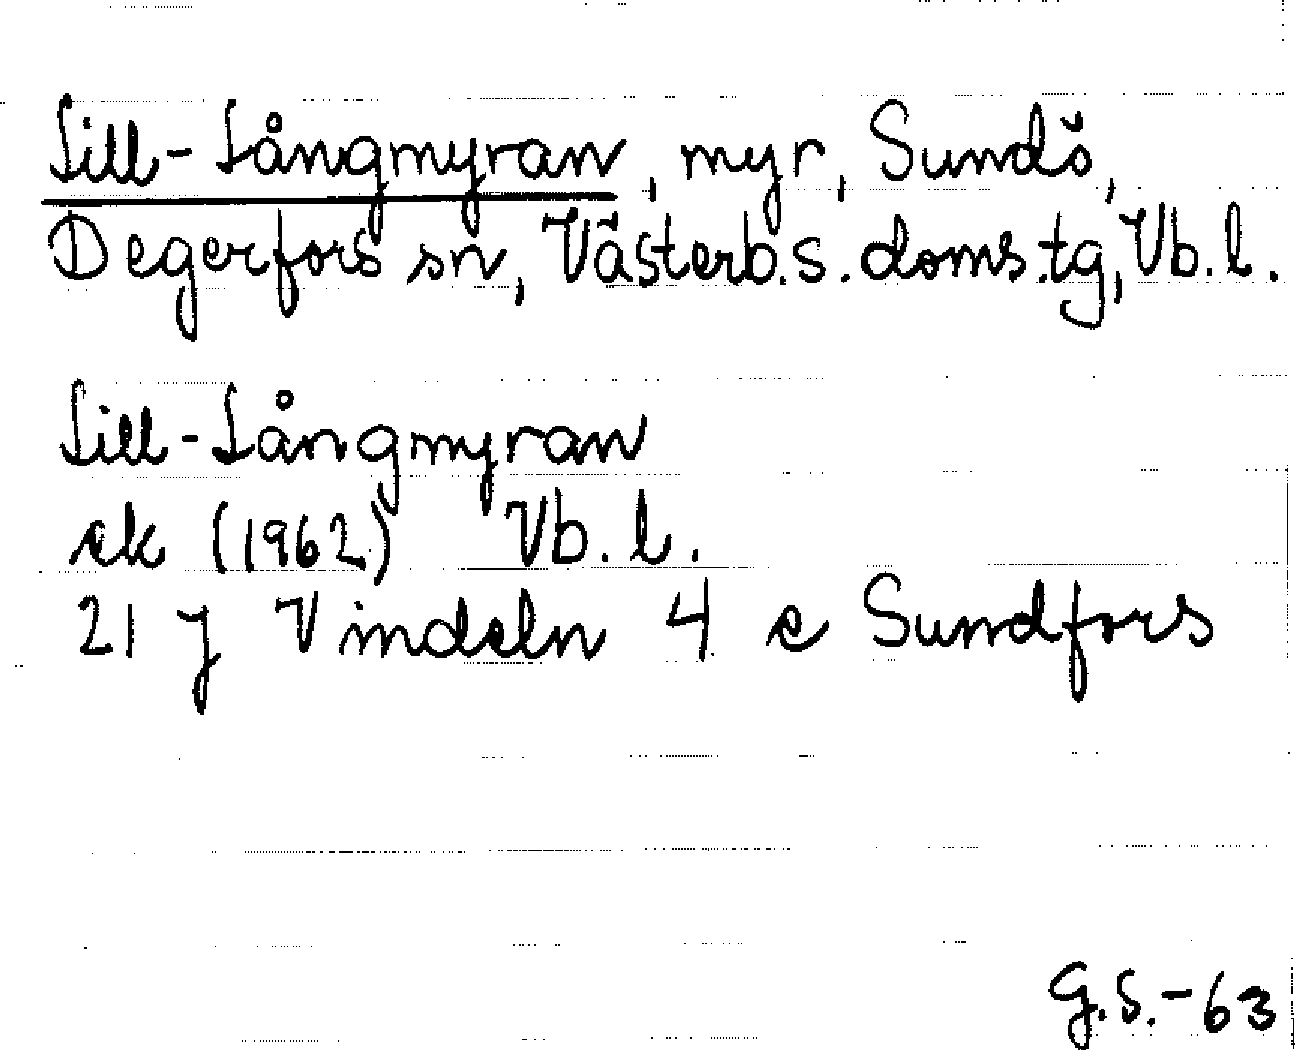 Lill-Långmyran, myr, Sundö,
Degerfors sn, Västerb.s.doms.tg, Vb.l.
Lill-Långmyran
ek (1962) Vb.l.
21 J Vindeln 4 e Sundfors
G.S.-63